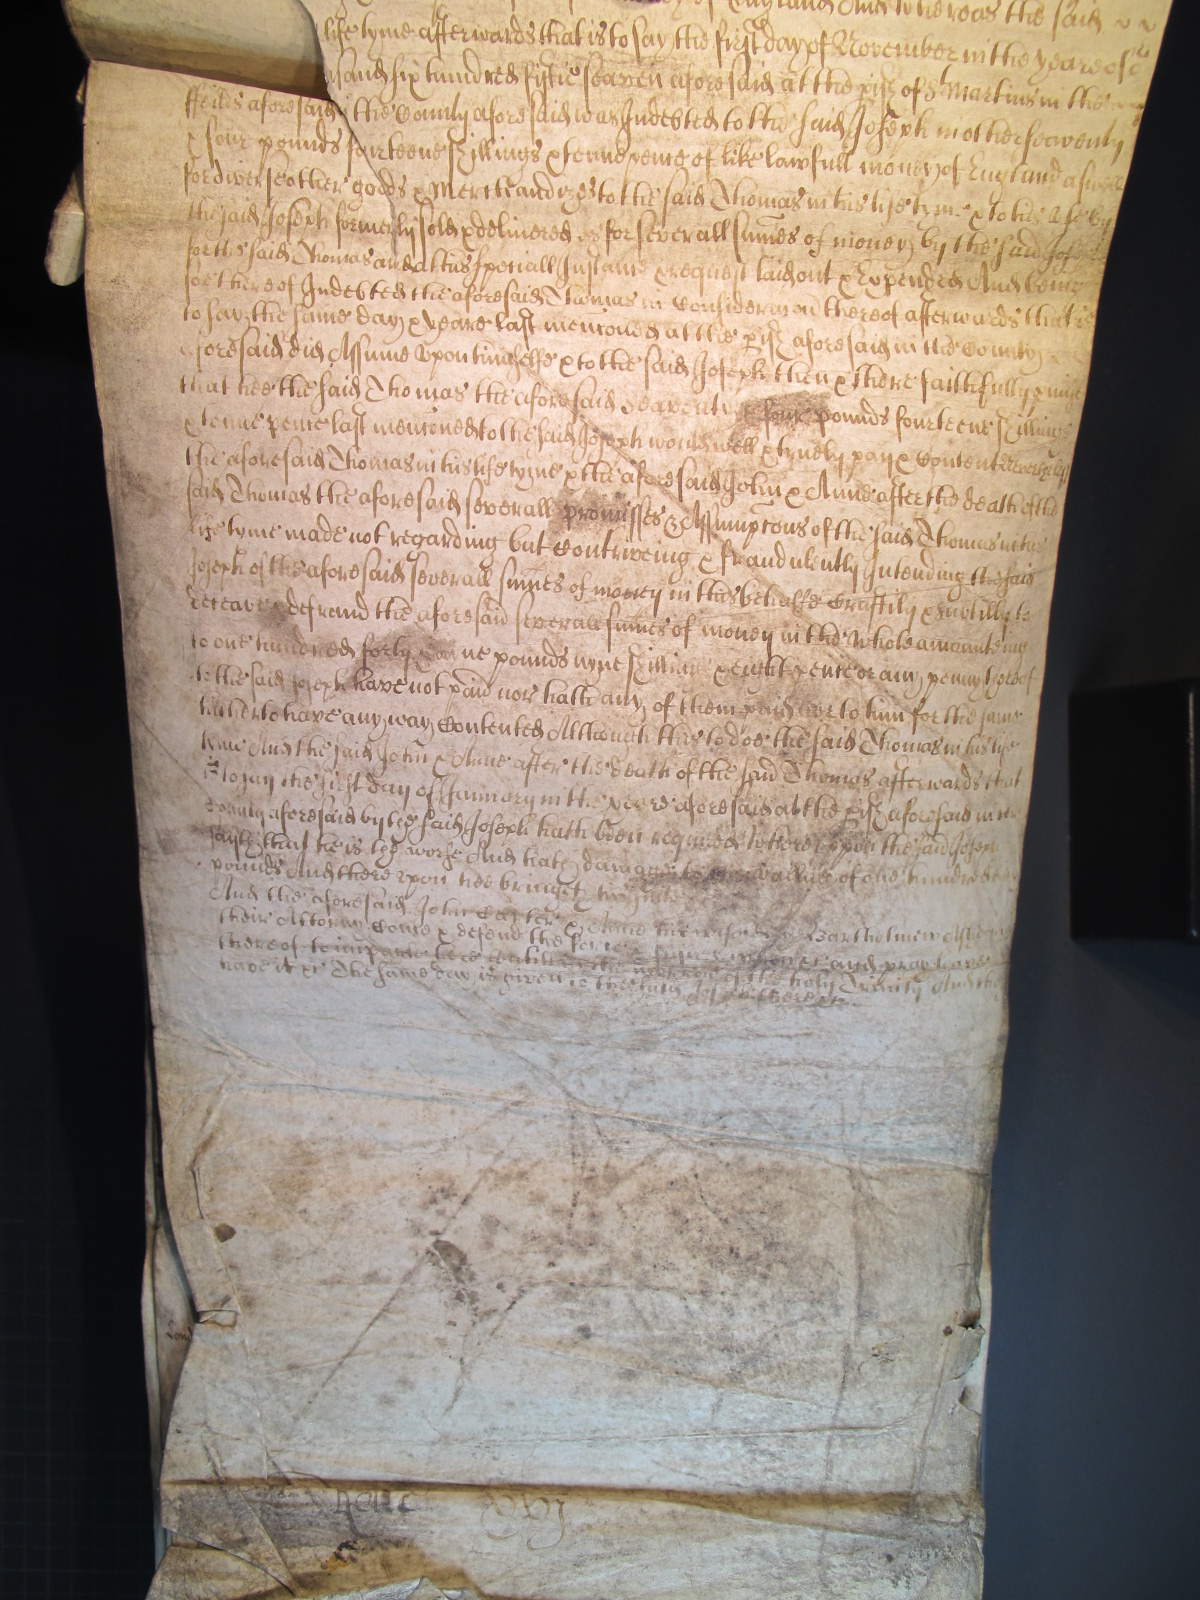 of England And whereas the said
life tyme afterwards that is to say the first day of November in the yeare of o
sand six hundred fiftie seaven aforesaid at the pish of St Martins in the
ffeilds aforesaid in the County aforesaid was Indebted to the said Joseph in other seaventy
& four pounds fourteene shillings & tenne pence of like lawfull money of England aswell
for diverse other goods & merchandizes to the said Thomas in his life tyme & to his use by
the said Joseph formerly sold & delivered as for severall summes of money by the said Joseph
for the said Thomas and att his speciall Instance & request laid out & Expended And being
soe thereof Indebted the aforesaid Thomas in Consideracon thereof afterwards that is
to say the same day & yeare last mencioned at the pish aforesaid in the County
aforesaid did Assume upon himselfe & to the said Joseph then & there faithfully promise
that hee the said Thomas the aforesaid seaventy & four pounds fourteene shillings
& tenne pence last mencioned to the said Joseph would well & truely pay & Content Neverthelesse
the aforesaid Thomas in his life tyme & the aforesaid John & Anne after the death of the
said Thomas the aforesaid severall promisses & Assumptons of the said Thomas in his
life tyme made not regarding but Contriveing & fraudulently Intending the said
Joseph of the aforesaid severall summes of money in this behalfe Craftily & subtilly to
deceave & defraud the aforesaid severall summes of money in the whole amounting
to one hundred forty nyne pounds nyne shillings & eight pence or any penny thereof
to the said Joseph have not paid nor hath any of them paid nor to him for the same
hitherto have any way Contented Although this to doe the said Thomas in his life
tyme And the said John & Anne after the death of the said Thomas afterwards that
is to say the first day of January in the yeare aforesaid at the pish aforesaid in the
County aforesaid by the said Joseph hath been required Whereupon the said Joseph
saith that he is the worse And hath damage to the vallue of one hundred
pounds And thereupon hee bringeth his suite
And the aforesaid John Carter & Anne his wife by Bartholmew
their Attorny Come & defend the force &c and pray
thereof to imparle here untill of the holy Trinity And they
have it &c The same day is given to the said Joseph here &c
Lond